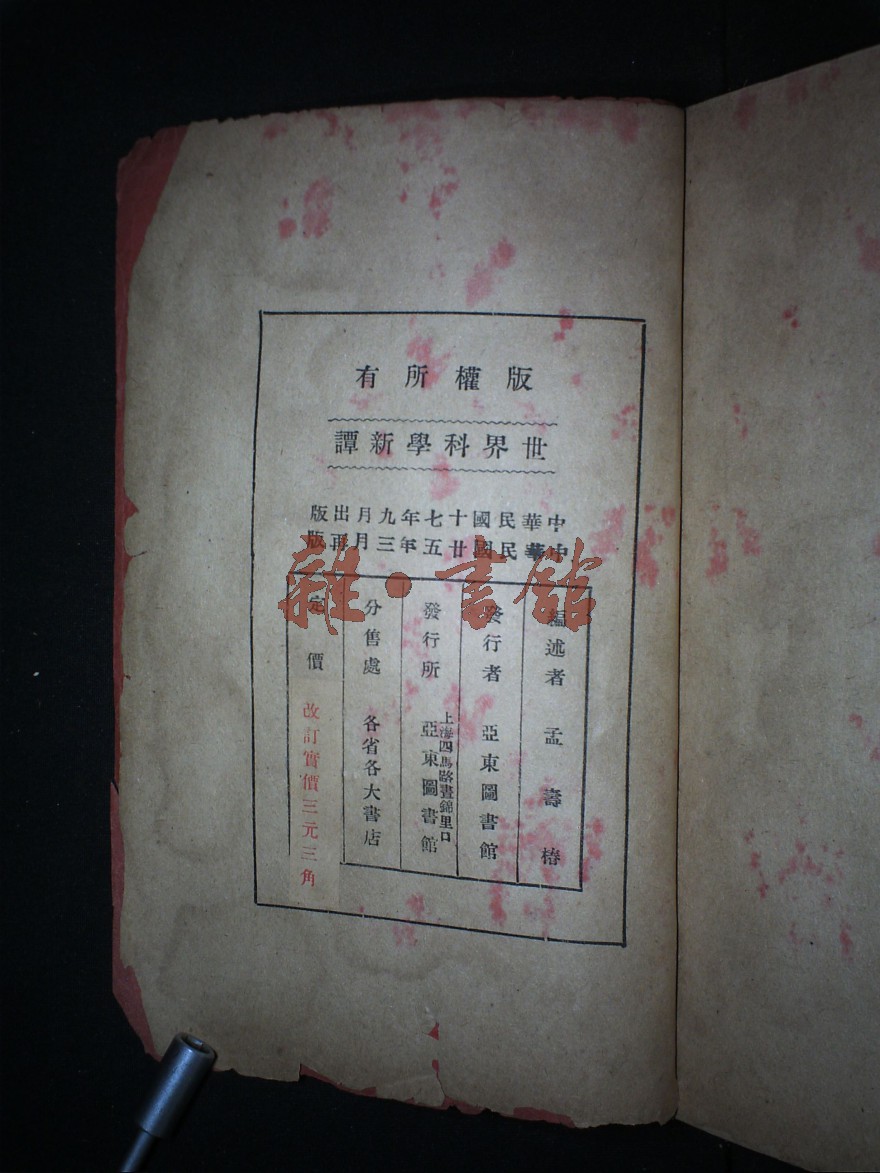 版權所有
世界科學新譚
中華民國十七年九月出版
中華民國廿五年三月再版
編述者 孟壽椿
發行者 亞東圖書館
發行所 上海四馬路晝錦里口 亞東圖書館
分售處 各省各大書店
定價 改訂實價三元三角
雜·書館